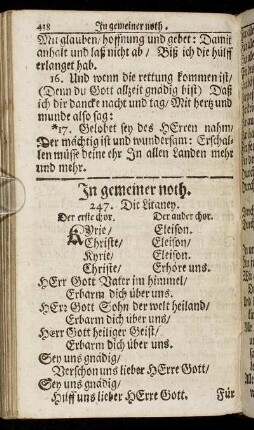 418 In gemeiner noth.
Mit glauben/ hoffnung und gebet: Damit
anhalt und laß nicht ab/ Biß ich die hülff
erlanget hab.
16. Und wenn die rettung kommen ist/
(Denn du Gott allzeit gnädig bist) Daß
ich dir dancke nacht und tag/ Mit hertz und
munde also sag:
*17. Gelobet sey des HErren nahm/
Der mächtig ist und wundersam: Erschal-
len müsse deine ehr In allen Landen mehr
und mehr.
In gemeiner noth.
247. Die Litaney.
Der erste chor. Der ander chor.
KYrie/ Eleison.
Christe/ Eleison/
Kyrie/ Eleison.
Christe/ Erhöre uns.
HErr Gott Vater im himmel/
Erbarm dich über uns.
HErr Gott Sohn der welt heiland/
Erbarm dich über uns/
HErr Gott heiliger Geist/
Erbarm dich über uns.
Sey uns gnädig/
Verschon uns lieber HErre Gott/
Sey uns gnädig/
Hilff uns lieber HErre Gott. Für